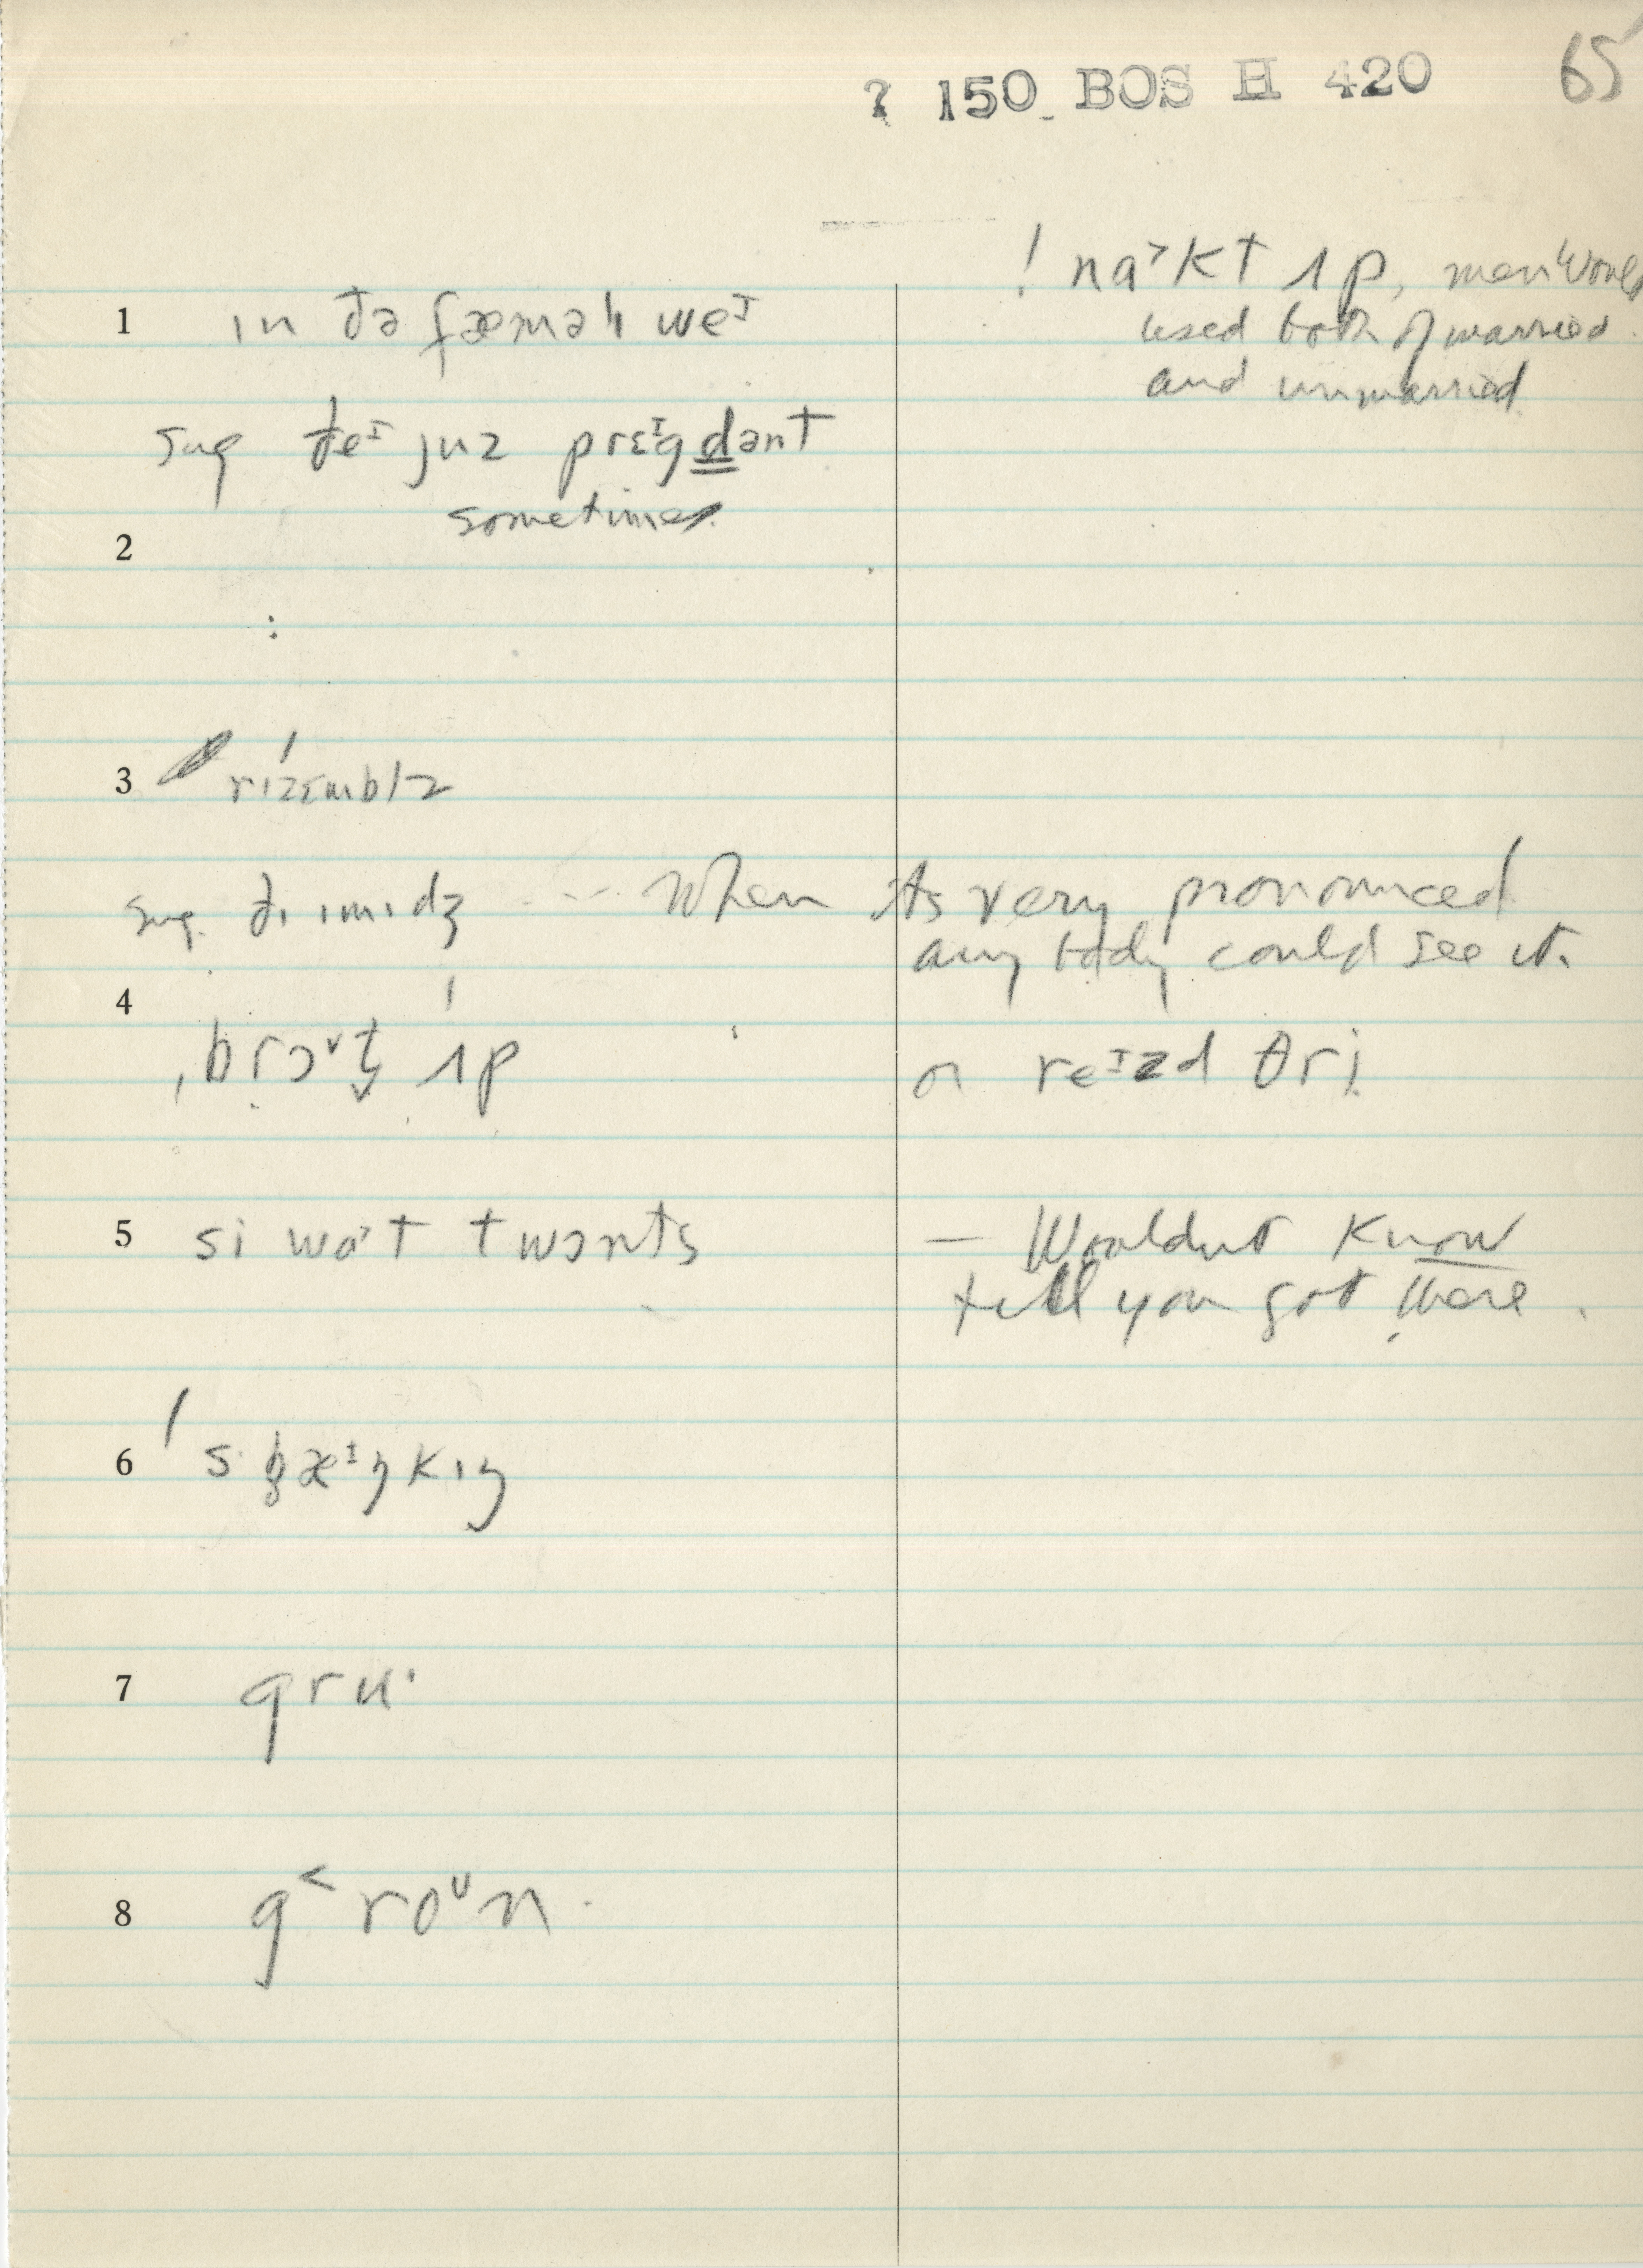 ? 150 BOS H 420 65
! nɑ˃kt ʌp, men would
1 ɪn ðə fæməlɪ weᴵ
used both of married
and unmarried
sug ðeᴵ juz prɛᴵgdənt
sometimes
2
:
3 rɪzɛmblz
sug. ðɪ ɪmɪdʒ --- When its very pronounced
any body could see it.
4
brɔˇt ʌp or reᴵzd θri
5 si wɑt twɔnts — Wouldnt know
till you got there.
6 spæᴵŋkɪŋ
7 gru·
8 g˂roᵁn